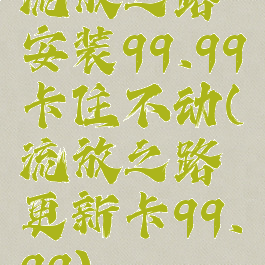 流放之路
安装99.99
卡住不动(
流放之路
更新卡99.
99)